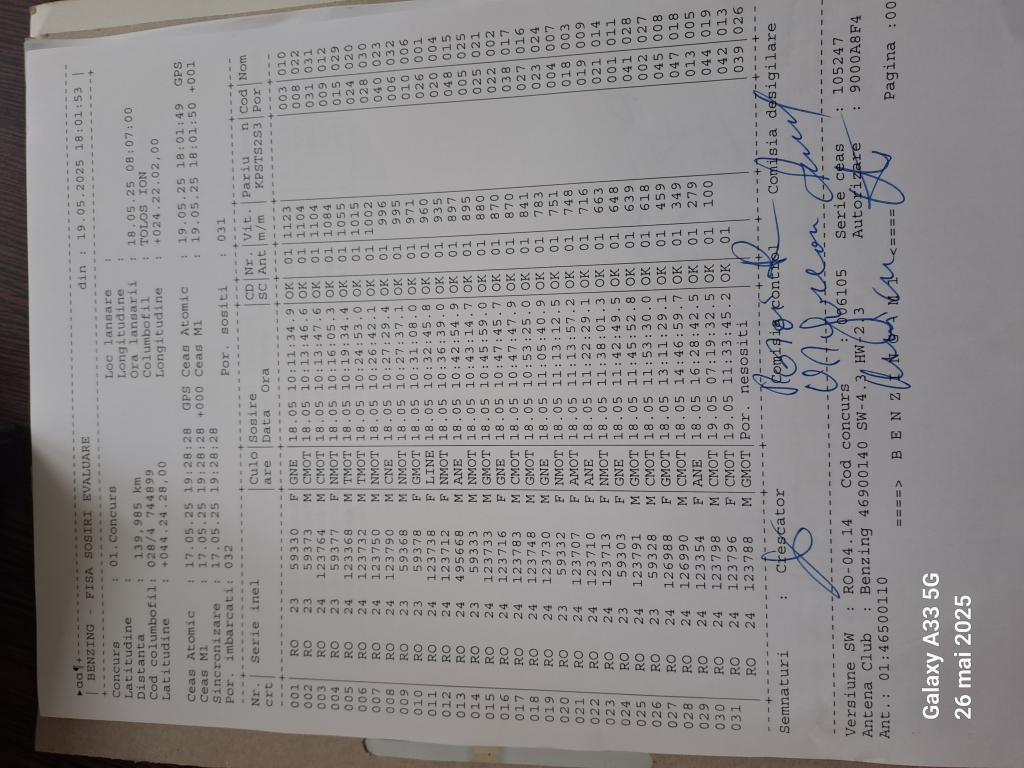 ▸αα¶+
| BENZING - FISA SOSIRI EVALUARE din : 19.05.2025 18:01:53 |
Concurs : 01.Concurs Loc lansare :
Latitudine : Longitudine :
Distanta : 139,985 km Ora lansarii : 18.05.25 08:07:00
Cod columbofil: 028/4 744899 Columbofil : TOLOS ION
Latitudine : +044.24.28,00 Longitudine : +024.22.02,00
Ceas Atomic : 17.05.25 19:28:28 GPS Ceas Atomic : 19.05.25 18:01:49 GPS
Ceas M1 : 17.05.25 19:28:28 +000 Ceas M1 : 19.05.25 18:01:50 +001
Sincronizare : 17.05.25 19:28:28
Por. imbarcati: 032 Por. sositi : 031
Nr.| Serie inel |Culo|Sosire |CD|Nr.|Vit.|Pariu n|Cod|Nom
crt |are |Data Ora |SC|Ant|m/m |KPSTS2S3|Por|
001 RO 23 59330 F GNE 18.05 10:11:34.9 OK 01 1123 003 010
002 RO 23 59373 M CMOT 18.05 10:13:46.6 OK 01 1104 008 022
003 RO 24 123764 M CMOT 18.05 10:13:47.6 OK 01 1104 031 031
004 RO 23 59377 F NMOT 18.05 10:16:05.3 OK 01 1084 009 012
005 RO 24 123368 M TMOT 18.05 10:19:34.4 OK 01 1055 015 029
006 RO 24 123732 M TMOT 18.05 10:24:53.0 OK 01 1015 024 020
007 RO 24 123750 M NMOT 18.05 10:26:42.1 OK 01 1002 028 030
008 RO 24 123790 M CNE 18.05 10:27:29.4 OK 01 996 046 023
009 RO 23 59368 M NMOT 18.05 10:27:37.1 OK 01 995 006 032
010 RO 23 59378 F GMOT 18.05 10:31:08.0 OK 01 971 010 006
011 RO 24 123738 F LINE 18.05 10:32:45.8 OK 01 960 026 001
012 RO 24 123712 F NMOT 18.05 10:36:39.0 OK 01 935 020 004
013 RO 24 495668 M ANE 18.05 10:42:54.9 OK 01 897 048 015
014 RO 23 59333 M NMOT 18.05 10:43:14.7 OK 01 895 005 025
015 RO 24 123733 F GMOT 18.05 10:45:59.0 OK 01 880 025 021
016 RO 24 123716 F GNE 18.05 10:47:34.6 OK 01 870 022 002
017 RO 24 123783 M CMOT 18.05 10:47:47.9 OK 01 870 038 017
018 RO 24 123748 M GMOT 18.05 10:53:25.0 OK 01 841 027 016
019 RO 24 123730 M GNE 18.05 11:05:40.9 OK 01 783 023 024
020 RO 23 59332 F NMOT 18.05 11:13:12.5 OK 01 751 004 007
021 RO 24 123707 F AMOT 18.05 11:13:57.2 OK 01 748 018 003
022 RO 24 123710 F ANE 18.05 11:22:29.1 OK 01 716 019 009
023 RO 24 123713 F NMOT 18.05 11:38:01.3 OK 01 663 021 014
024 RO 23 59303 F GNE 18.05 11:42:49.5 OK 01 648 001 011
025 RO 24 123791 M GMOT 18.05 11:45:52.8 OK 01 639 041 028
026 RO 23 59328 M CMOT 18.05 11:53:30.0 OK 01 618 002 027
027 RO 24 126988 F GMOT 18.05 13:11:29.1 OK 01 459 045 008
028 RO 24 126990 M CMOT 18.05 14:46:59.7 OK 01 349 047 018
029 RO 24 123354 F ANE 18.05 16:28:42.5 OK 01 279 013 005
030 RO 24 123798 M CMOT 19.05 07:19:32.5 OK 01 100 044 019
031 RO 24 123796 F CMOT 19.05 11:33:45.2 OK 01 042 013
RO 24 123788 M GMOT Por. nesositi 039 026
Semnaturi : Crescator Comisia control Comisia desigilare
Versiune SW : RO-04.14 Cod concurs : 006105 Serie ceas : 105247
Antena Club : Benzing 46900140 SW-4.3 HW-213 Autorizare : 9000A8F4
Ant.: 01:46500110
====> B E N Z I N G M 1 <==== Pagina :00
Galaxy A33 5G
26 mai 2025